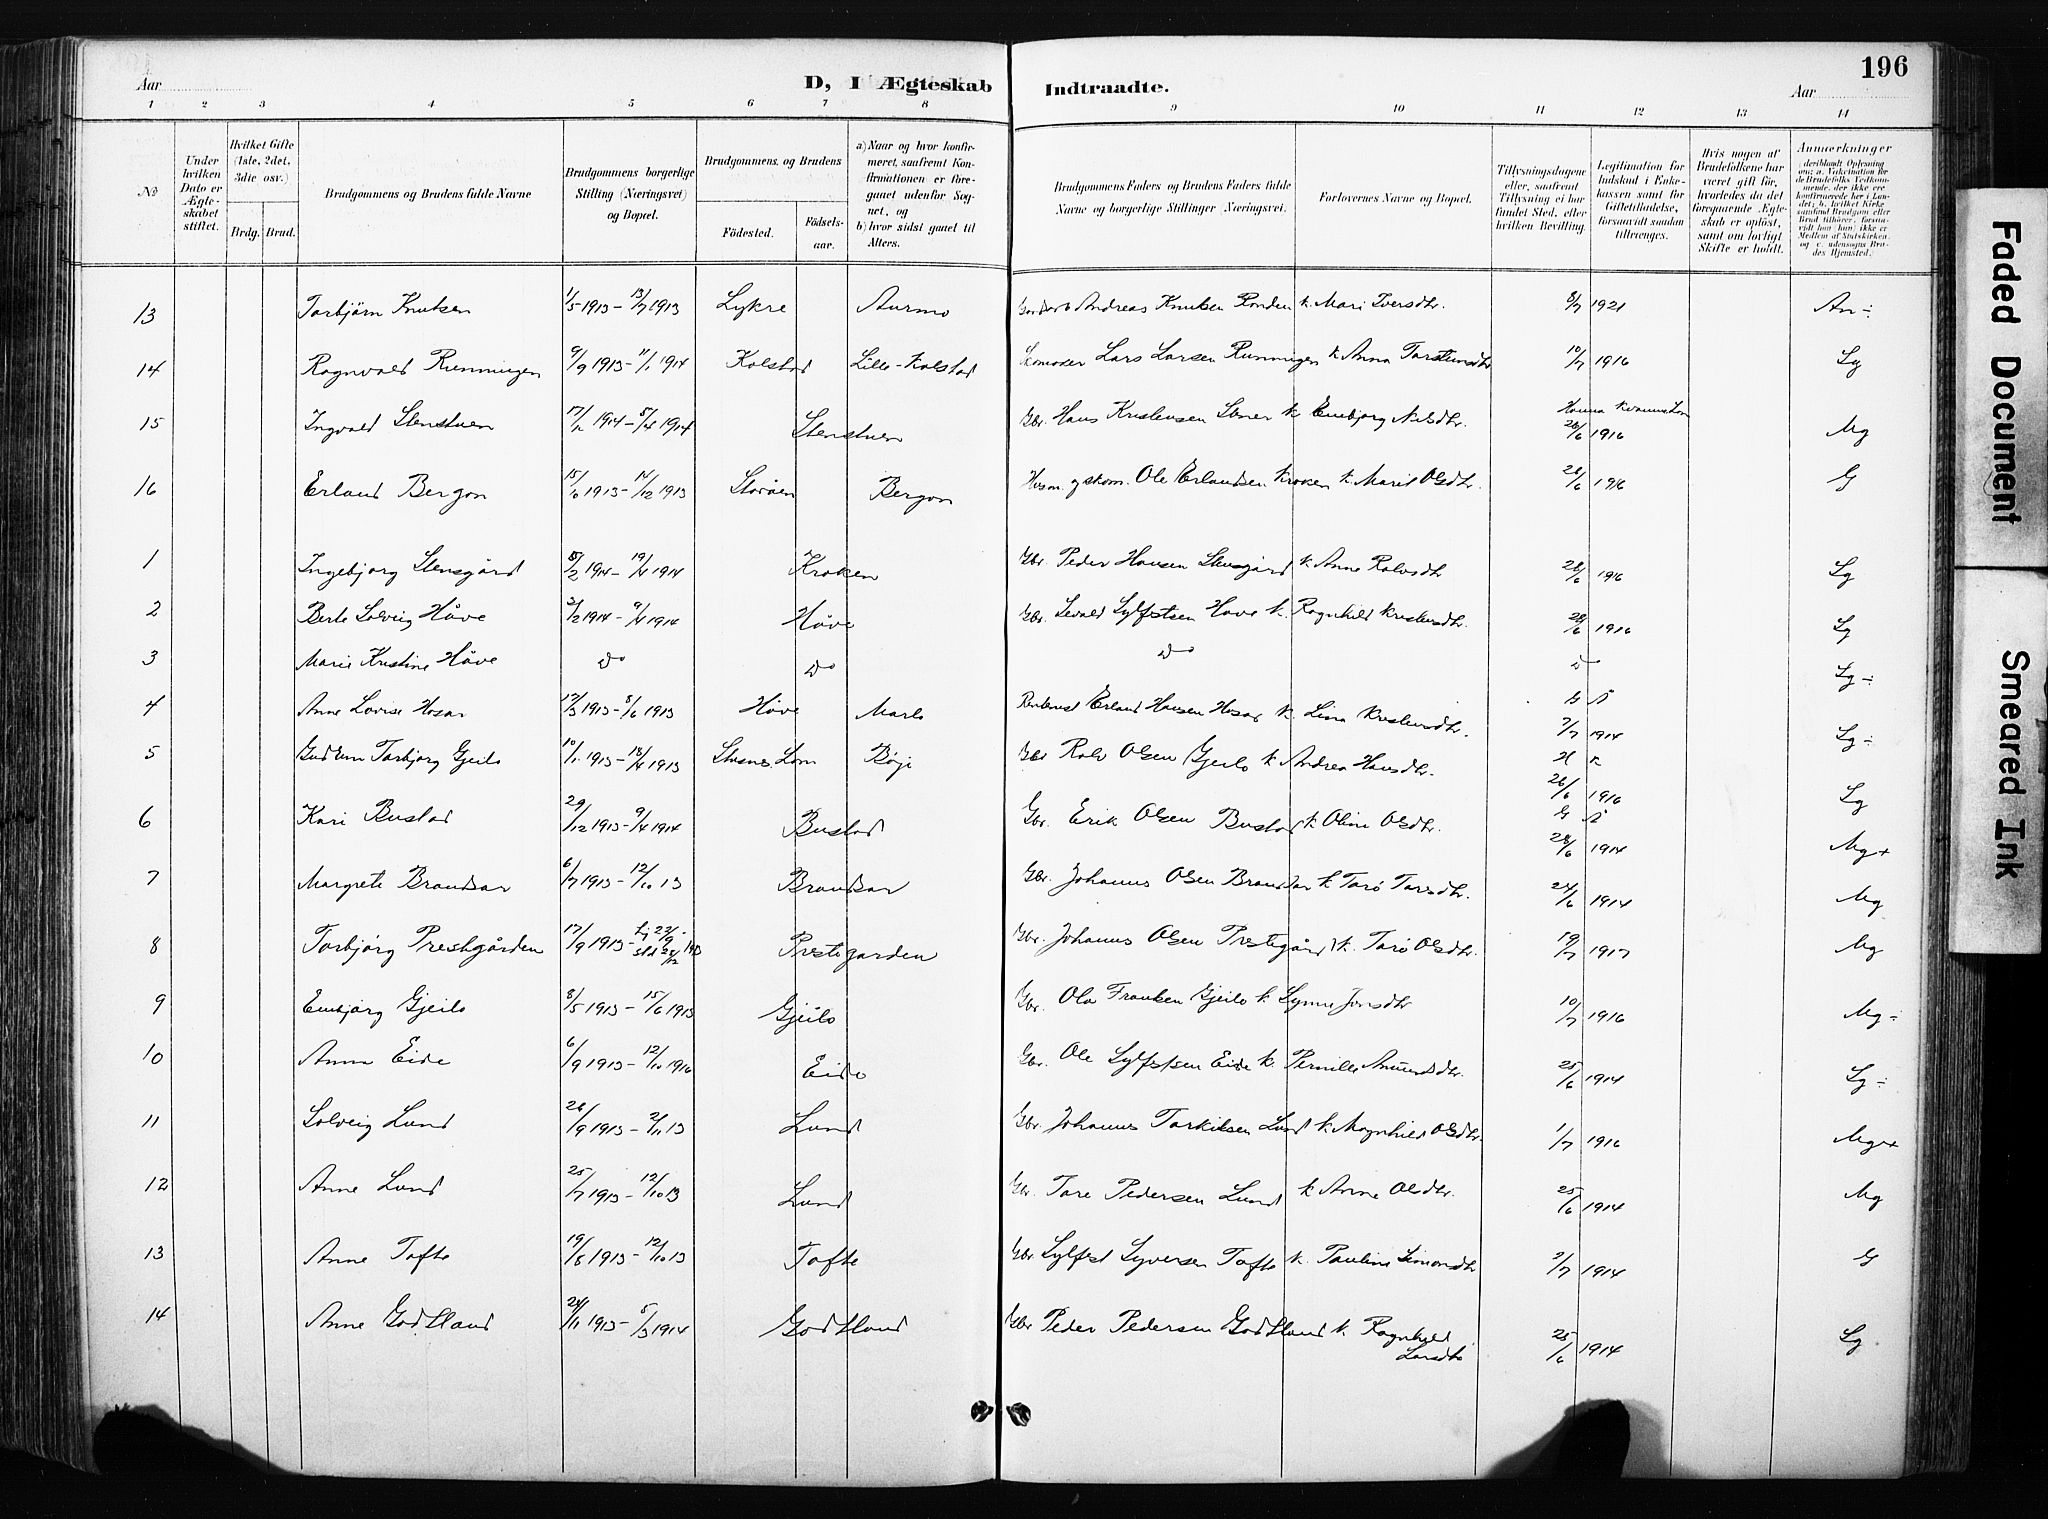 196
Aar
D, I Ægteskab Indtraadte.
Aar
1 2 3 4 5 6 7 8 9 10 11 12 13 14
№
Under hvilken Dato er Ægteskabet stiftet.
Hvilket Gifte (1ste, 2det, 3die osv.)
Brdg. Brud.
Brudgommens og Brudens fulde Navne
Brudgommens borgerlige Stilling (Næringsvei) og Bopæl.
Brudgommens og Brudens
Fødested.
Fødselsaar.
a) Naar og hvor konfirmeret, saafremt Konfirmationen er foregaaet udenfor Sognet, og
b) hvor sidst gaaet til Alters.
Brudgommens Faders og Brudens Faders fulde Navne og borgerlige Stillinger (Næringsvei.
Forlovernes Navne og Bopæl.
Tillysningsdagene eller, saafremt Tillysning ei har fundet Sted, efter hvilken Bevilling.
Legitimation for Indskud i Enkekassen samt for Giftetilladelse, forsaavidt saadan tiltrænges.
Hvis nogen af Brudefolkene har været gift før, hvorledes da det foregaaende Ægteskab er opløst, samt om lovligt Skifte er holdt.
Anmærkninger
13 Torbjörn Knutsen 1/5 1913 – 13/7 1913 Lykre Aurmo Andreas Knutsen Ronden k. Mari Iversdtr. 8/7 1921 An ÷
14 Ragnvald Runningen 9/9 1913 – 11/1 1914 Kolstad Lille-Kolstad Lars Larsen Runningen k. Anna Torsteinsdtr 10/7 1916 Sg
15 Ingvald Stenstuen 1914 – 5/4 1914 Stenstuen Gbr. Hans Kristensen k. Embjørg Nilsdtr. 26/6 1916 Mg
16 Erland Bergom 1913 – 14/12 1913 Bergom Ole Erlandsen Kroken k. Marit Olsdtr. 28/6 1916 G
1 Ingebjørg Stensgård 15/2 1914 – 19/4 1914 Kroken Gbr. Peder Hansen Stensgård k. Anne Rolvsdtr 28/6 1916 Sg
2 Berte Solveig Håve 3/2 1914 – 9/4 1914 Håve Gbr. Sylfestsen Håve k. Ragnhild Kristensdtr. 28/6 1916 Sg
3 Marie Kristine Håve do do do do Sg ÷
4 Anne Lovise Hosar 17/3 1913 – 8/6 1913 Håve Marlo Erland Hansen Hosar k. Lina Kristensdtr. 7/7 1914 Sg ÷
5 Torbjørg Gjeilo 10/1 1913 – 13/4 1913 Lom Bøje Gbr Rolv Olsen Gjeilo k. Andrea Hansdtr. 26/6 1916 Sg
6 Kari Bustad 29/12 1913 – 9/4 1914 Bustad Gbr. Erik Olsen Bustad k. Oline Olsdtr. 28/6 1914 Mg +
7 Margrete Brandsar 6/7 1913 – 12/10 13 Brandsar Gbr. Johannes Olsen Brandsar k. Torø Torsdtr. 24/6 1914 Mg
8 Torbjørg Prestgården 17/9 1913 – Prestegarden Gbr. Johannes Olsen Prestegård k. Torø Olsdtr. 19/7 1917 Mg
9 Embjørg Gjeilo 8/5 1913 – 15/6 1913 Gjeilo Gbr. Ola Fransen Gjeilo k. Synne Jonsdtr 10/7 1916 Mg ÷
10 Anna Eide 6/9 1913 – 12/10 1916 Eide Gbr. Ole Sylfestsen Eide k. Pernille Amundsdtr. 25/6 1914 Sg ÷
11 Solveig Lund 26/9 1913 – 2/11 13 Lund Gbr. Johannes Torkilsen Lund k. Magnhild Olsdtr. 1/7 1916 Mg +
12 Anne Lund 25/7 1913 – 12/10 13 Lund Gbr. Tore Pedersen Lund k. Anne Olsdtr. 25/6 1914 Mg
13 Anne Tofte 19/8 1913 – 12/10 13 Tofte Gbr Sylfest Syversen Tofte k. Pauline Simonsdtr 2/7 1914 G
14 Anne Godtland 24/11 1913 – 5/3 1914 Godtland Gbr Peder Pedersen Godtland k. Ragnhild
Larsdtr 25/6 1914 Sg
Faded Document
Smeared Ink